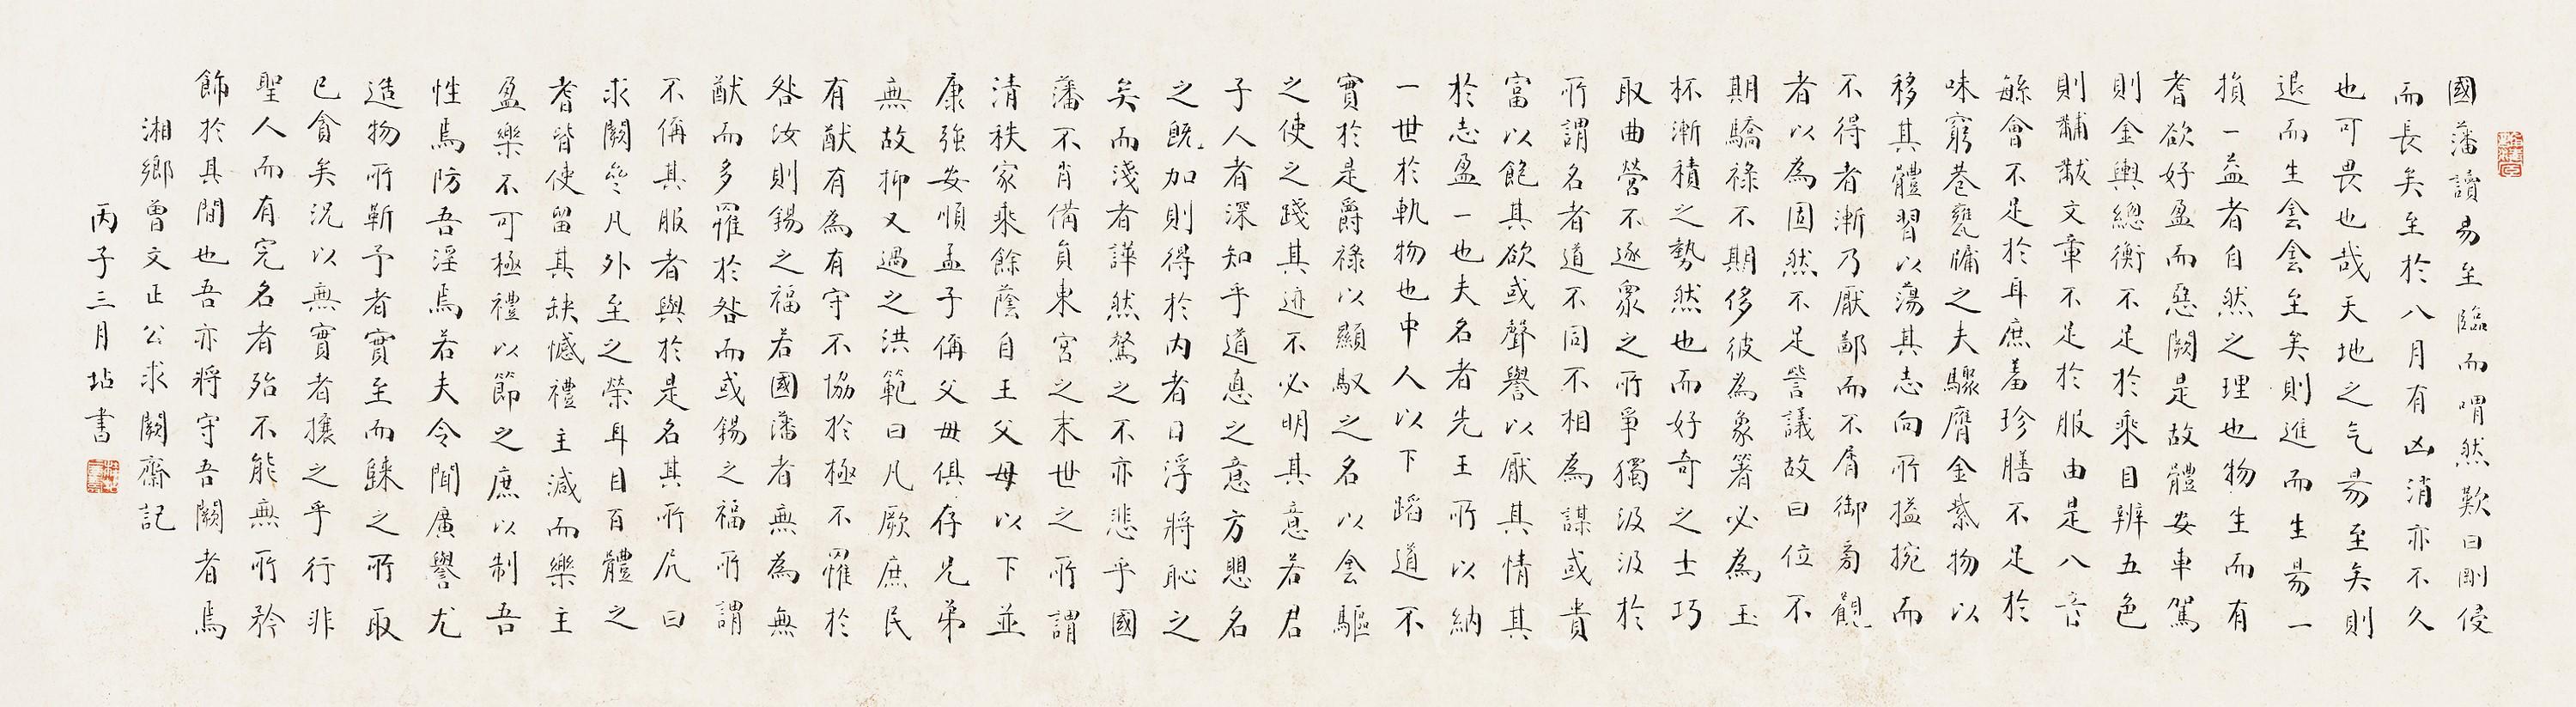 國藩讀易至臨而喟然歎曰剛侵
而長矣至於八月有凶消亦不久
也可畏也哉天地之气昜至矣則
退而生侌侌至矣則進而生昜一
損一益者自然之理也物生而有
耆欲好盈而惡闕是故體安車駕
則金輿總衡不足於乘目辨五色
則黼黻文章不足於服由是八音
繇會不足於耳庶羞珍膳不足於
味窮巷甕牖之夫驟膺金紫物以
移其體習以蕩其志向所搤捥而
不得者漸乃厭鄙而不屑御旁觀
者以為固然不足訾議故曰位不
期驕祿不期侈彼為象箸必為玉
杯漸積之勢然也而好奇之士巧
取曲營不逐眾之所爭獨汲汲於
所謂名者道不同不相為謀或貴
富以飽其欲或聲譽以厭其情其
於志盈一也夫名者先王所以納
一世於軌物也中人以下蹈道不
實於是爵祿以顯馭之名以侌驅
之使之踐其迹不必明其意若君
子人者深知乎道悳之意方思名
之既加則得於內者日浮將恥之
矣而淺者譁然騖之不亦悲乎國
藩不肖備員東宮之末世之所謂
清秩家乘餘蔭自王父母以下並
康強安順孟子偁父母俱存兄弟
無故抑又過之洪範曰凡厥庶民
有猷有為有守不協於極不罹於
咎汝則錫之福若國藩者無為無
猷而多罹於咎而或錫之福所謂
不偁其服者與於是名其所凥曰
求闕堂凡外至之榮耳目百體之
耆皆使留其缺憾禮主減而樂主
盈樂不可極禮以節之庶以制吾
性焉防吾淫焉若夫令聞廣譽尤
造物所靳予者實至而歸之所取
已貪矣況以無實者攘之乎行非
聖人而有完名者殆不能無所矜
飾於其間也吾亦將守吾闕者焉
湘鄉曾文正公求闕齋記
丙子三月坫書